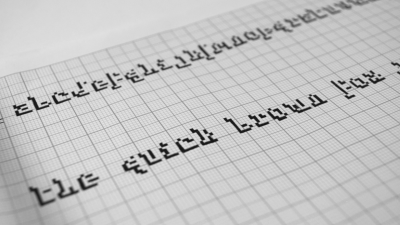 abcdefghijklmnopqrstu
the quick brown fox